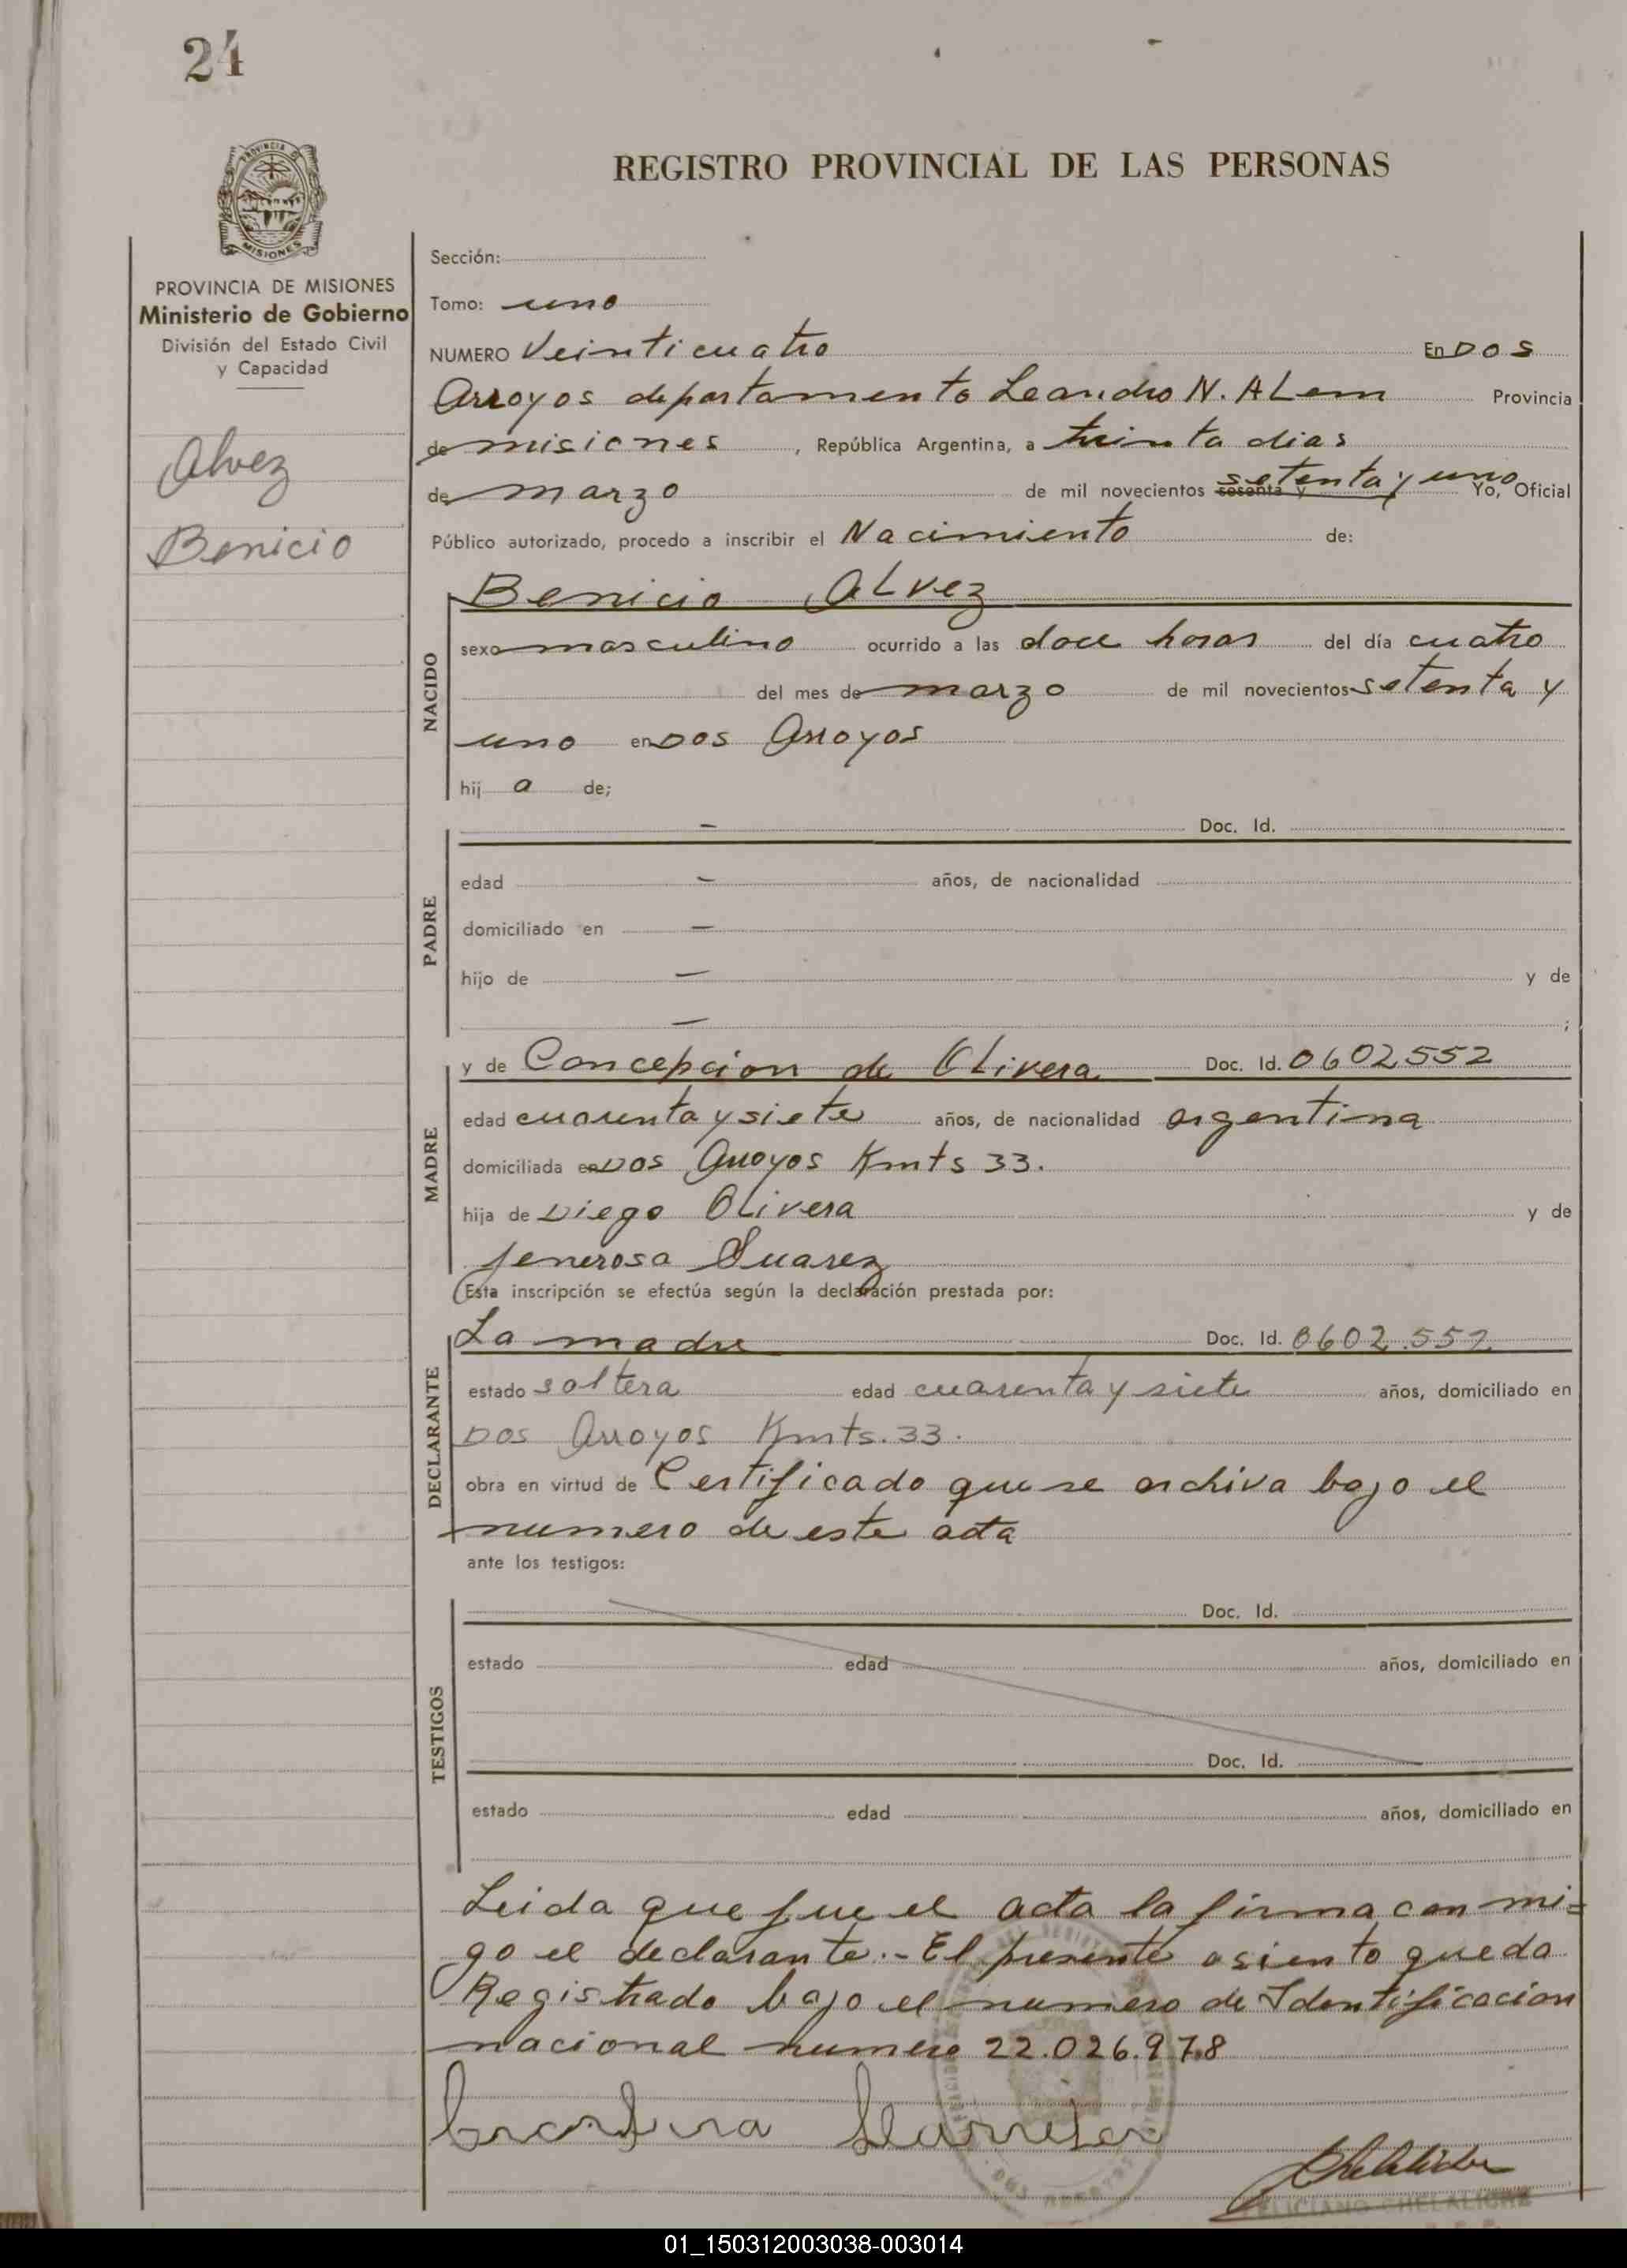 24
PROVINCIA DE MISIONES
Ministerio de Gobierno
División del Estado Civil
y Capacidad
Alvez
Benicio
REGISTRO PROVINCIAL DE LAS PERSONAS
Sección:
Tomo: uno
NUMERO Veinticuatro En DOS
Arroyos departamento Leandro N. ALem Provincia
de misiones, República Argentina, a treinta dias
de marzo de mil novecientos sesenta y setenta y uno Yo, Oficial
Público autorizado, procedo a inscribir el Nacimiento de:
NACIDO
Benicio ALvez
sexo masculino ocurrido a las doce horas del día cuatro
del mes de marzo de mil novecientos setenta y
uno en DOS Arroyos
hij a de;
PADRE
- Doc. Id.
edad - años, de nacionalidad
domiciliado en -
hijo de - y de
- ;
MADRE
y de Concepcion de OLivera Doc. Id. 0602552
edad cuarenta y siete años, de nacionalidad argentina
domiciliada en DOS Arroyos Kmts 33.
hija de Diego OLivera y de
Jenerosa Suarez
Esta inscripción se efectúa según la declaración prestada por:
DECLARANTE
La madre Doc. Id. 0602.552
estado soltera edad cuarenta y siete años, domiciliado en
DOS Arroyos Kmts. 33.
obra en virtud de Certificado que se archiva bajo el
numero de este acta
ante los testigos:
TESTIGOS
Doc. Id.
estado edad años, domiciliado en
Doc. Id.
estado edad años, domiciliado en
Leida que fue el acta la firma con mi=
go el declarante.- El presente asiento queda
Registrado bajo el numero de Identificacion
nacional numero 22.026.978
FELICIANO CHELALICHE
01_150312003038-003014